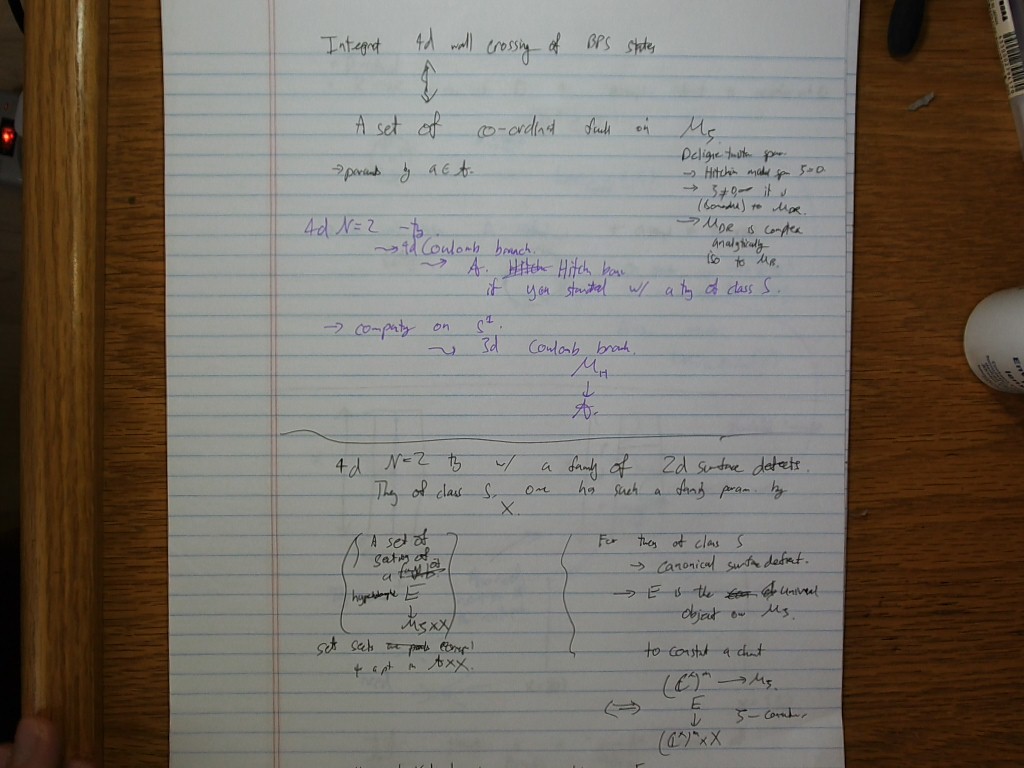 Integrat 4d wall crossing of BPS states
A set of co-ordinat funk on M_ζ
→ params by a ∈ A.
Deligne twistor space
→ Hitchin moduli sp ζ=0
→ ζ≠0 it is
(biholo) to M_DR.
→ M_DR is complex
analytically
iso to M_B.
4d N=2 th
⇝ 4d Coulomb branch.
⇝ A. Hitch base
if you started w/ a thy of class S.
→ compactify on S¹.
⇝ 3d Coulomb branch.
M_H
↓
A.
4d N=2 th w/ a family of 2d surface defects.
Theory of class S, one has such a family param. by
X.
A set of
sections of
a
E
↓
M_ζ×X
set
& a pt in A×X.
For theory of class S
→ canonical surface defect.
→ E is the universal
object on M_ζ.
to construct a chart
(C^×)^n → M_ζ.
⟺ E ζ-conn.
↓
(C^×)^n × X